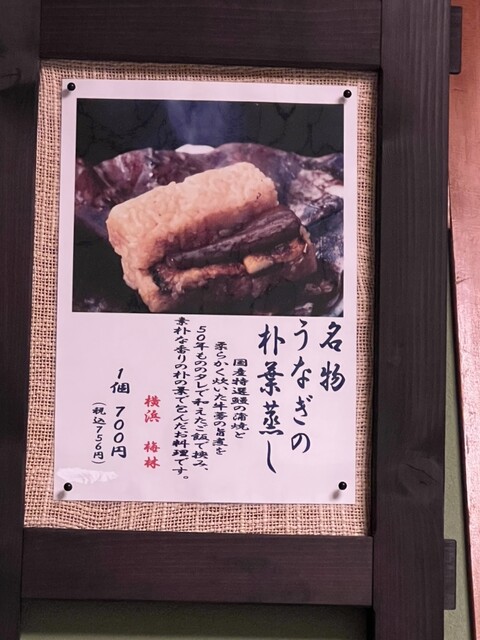 名物
うなぎの
朴葉蒸し
国産特選鰻の蒲焼と
柔らかく炊いた牛蒡の旨煮を
50年もののタレで和えたご飯で挟み、
素朴な香りの朴の葉で包んだお料理です。
横浜 梅林
1個 700円
(税込756円)